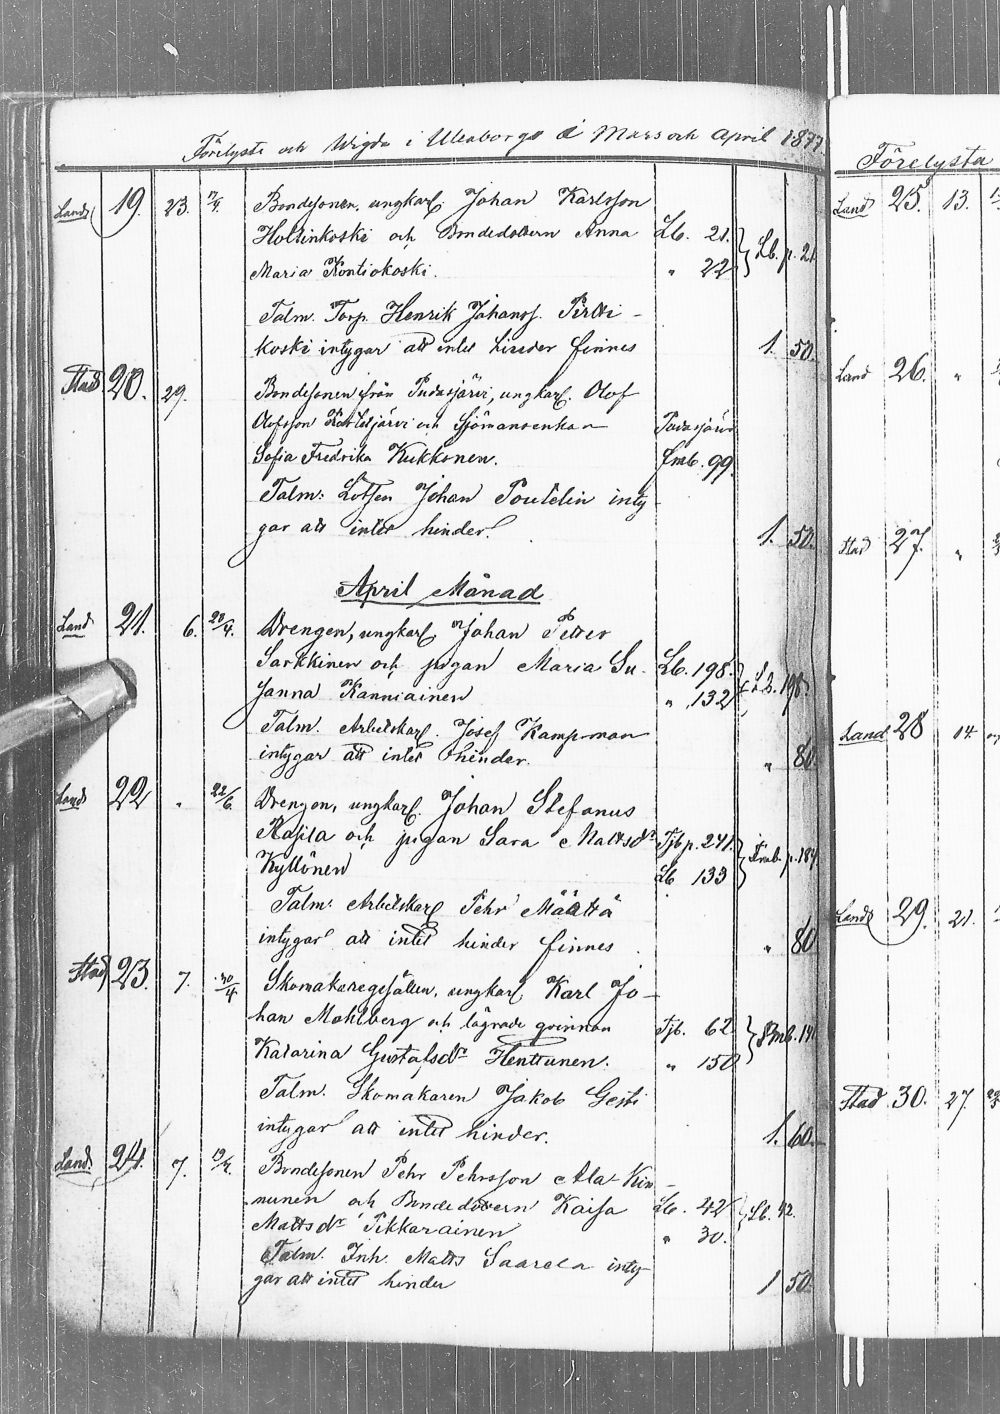 Förelyste och Wigda i Uleaborgs i Mars och April 1877.
Land 19. 23. Bondesonen, ungkarl. Johan Karlsson
Holtinkoski och Bondedottern Anna Lb. 21. Lb. p. 21
Maria Kontiokoski. " 22
Talm. Torp. Henrik Johanss. Pirtti-
koski intygar att intet hinder finnes 1. 50.
Stad 20. 29. Bondesonen från Pudasjärvi, ungkarl. Olof
Olofsson och Sjömansenkan Pudasjärvi
Sofia Fredrika Kukkonen. Emb. 99.
Talm: Lotsen Johan inty-
gar att intet hinder. 1. 50.
April Månad
Land 21. 6. 20/4. Drengen, ungkarl. Johan Petter
Sarkkinen och pigan Maria Su- Lb. 198. Lb. 198.
sanna Kanniainen " 132
Talm. Arbetskarl. Josef Kampman
intygar att intet hinder. " 80.
Land 22 " 22/6. Drengen, ungkarl. Johan Stefanus
och pigan Sara Mattsdr Tjb p. 241. p. 184
Kyllönen Lb 133
Talm: Arbetskarl Pehr Määttä
intygar att intet hinder finnes " 80
Stad 23. 7. 30/4 Skomakaregesällen, ungkarl Karl Jo-
han Mohlberg och lägrade qvinnan Tjb. 62.
Katarina Gustafsdr Henttunen. " 150
Talm. Skomakaren Jakob
intygar att intet hinder. 1. 60.
Land. 24. 7. Bondesonen Pehr Pehrsson Ala-Kin-
nunen och Bondedottern Kaisa Lb. 42 Lb. 42.
Mattsdr Pikkarainen " 30.
Talm. Inh. Matts Saarela inty-
gar att intet hinder 1 50
Förelysta
Land 25. 13.
Land 26. "
Stad 27. "
Land 28 14.
Land 29. 21.
Stad 30. 27.